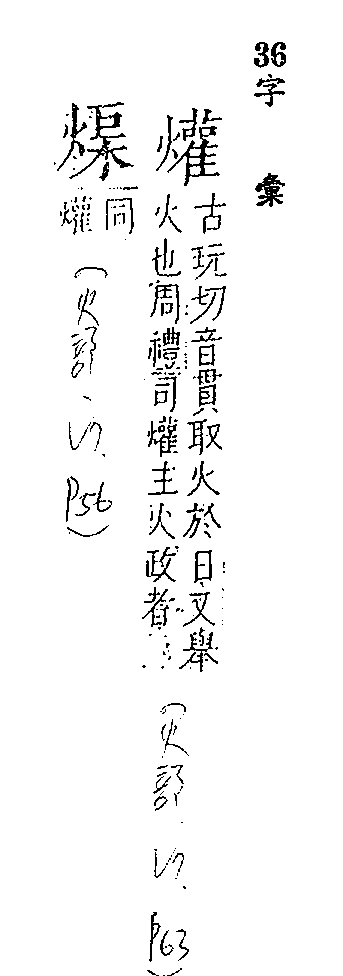 36字彙
爟
古玩切音貫取火於日又舉
火也周禮司爟主火政者
(火部、P63)
同
爟
(火部、P56)